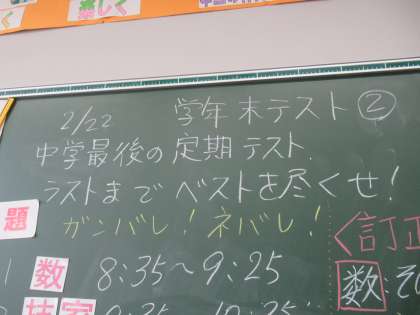 楽しく
2/22 学年末テスト②
中学最後の定期テスト.
ラストまでベストを尽くせ!
ガンバレ! ネバレ!
題
<訂正
1 数 8:35~9:25
数:そ
技家